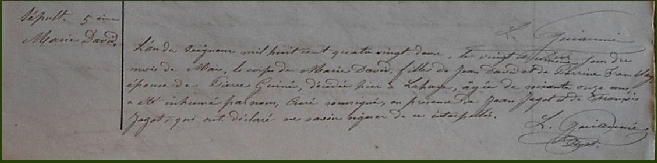 Sépult. 5 ème
Marie David.
L'an du Seigneur mil huit cent quatre vingt douze, le vingt jour du
mois de Mai, le corps de Marie David, fille de Jean David et de Perrine
épouse de Pierre Guinée, décédée hier à Lahaye, âgée de soixante onze ans,
a été inhumé par nous, Curé soussigné, en présence de Jean Jagot et de François
Jagot, qui ont déclaré ne savoir signer de ce interpellés.
L. Guillemié